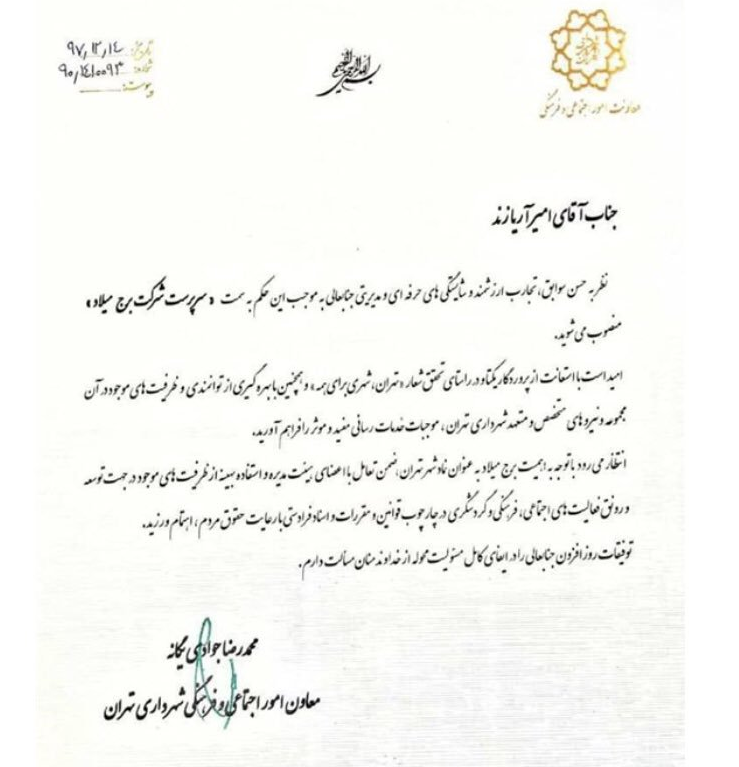 بسم الله الرحمن الرحیم
شهرداری تهران
معاونت امور اجتماعی و فرهنگی
تاریخ: ۹۷,۱۲,۱۴
شماره:
پیوست:
جناب آقای امیر آریازند
نظر به حسن سوابق، تجارب ارزشمند و شایستگی های حرفه ای و مدیریتی جنابعالی به موجب این حکم به سمت «سرپرست شرکت برج میلاد»
منصوب می شوید.
امید است با استعانت از پروردگار یکتا و در راستای تحقق شعار «تهران، شهری برای همه» و همچنین با بهره گیری از توانمندی و ظرفیت های موجود در آن
مجموعه و نیروهای متخصص و متعهد شهرداری تهران، موجبات خدمات رسانی مفید و موثر را فراهم آورید.
انتظار می رود با توجه به اهمیت برج میلاد به عنوان نماد شهر تهران، ضمن تعامل با اعضای هیئت مدیره و استفاده بهینه از ظرفیت های موجود در جهت توسعه
و رونق فعالیت های اجتماعی، فرهنگی و گردشگری در چارچوب قوانین و مقررات و اسناد فرادستی با رعایت حقوق مردم، اهتمام ورزید.
توفیقات روزافزون جنابعالی را در ایفای کامل مسئولیت محوله از خداوند منان مسألت دارم.
محمدرضا جوادی یگانه
معاون امور اجتماعی و فرهنگی شهرداری تهران